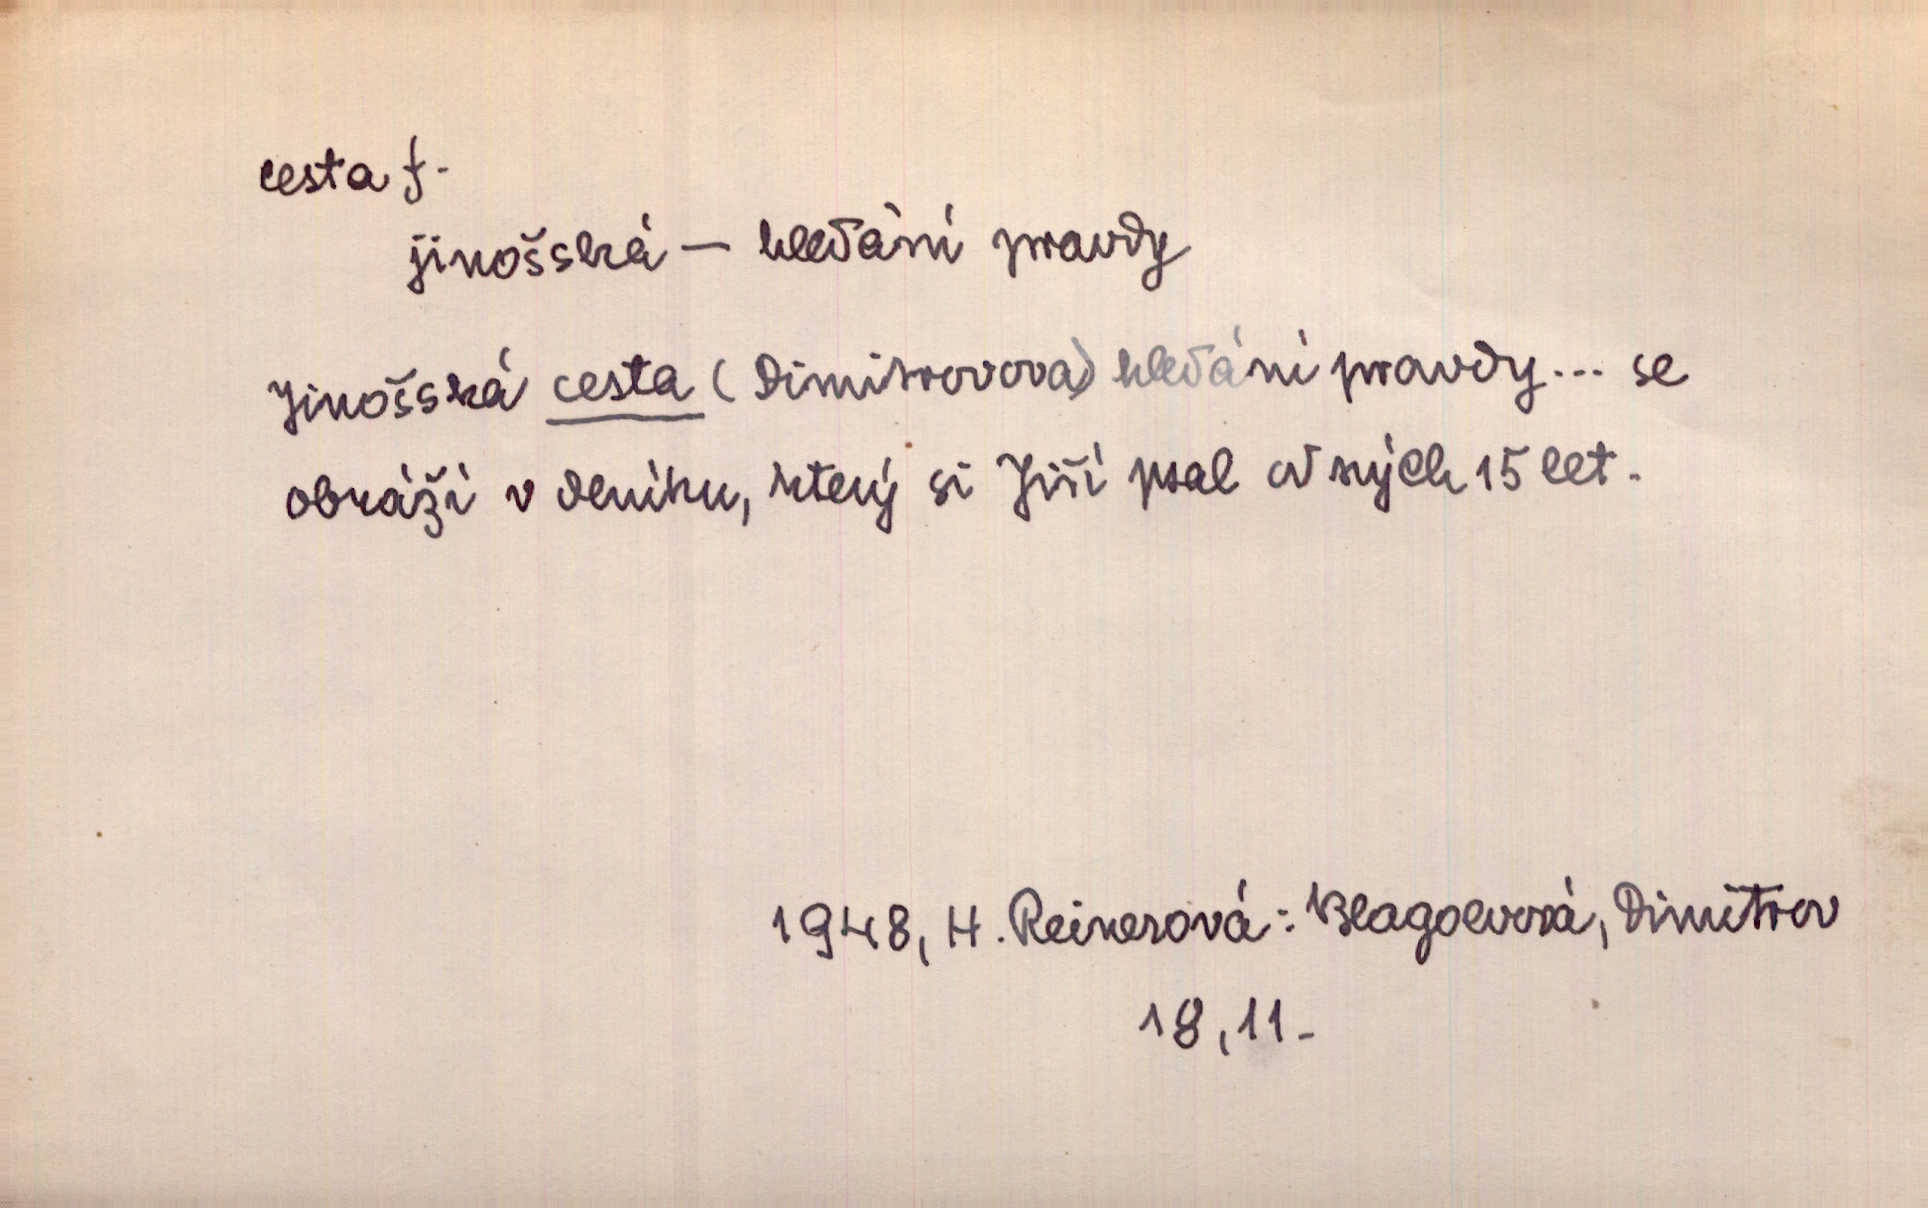 cesta f.
jinošská — hledání pravdy
Jinošská cesta (Dimitrovova) hledání pravdy... se
obráží v deníku, který si Jiří psal od svých 15 let.
1948, H. Reinerová: Blagoevová, Dimitrov
18, 11.